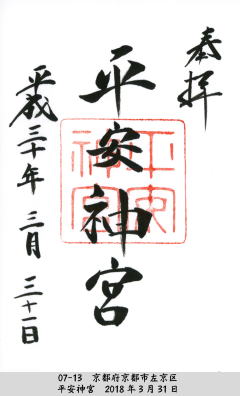 奉拝
平安神宮
平安神宮
平成三十年 三月 三十一日
07-13 京都府京都市左京区
平安神宮 2018年3月31日